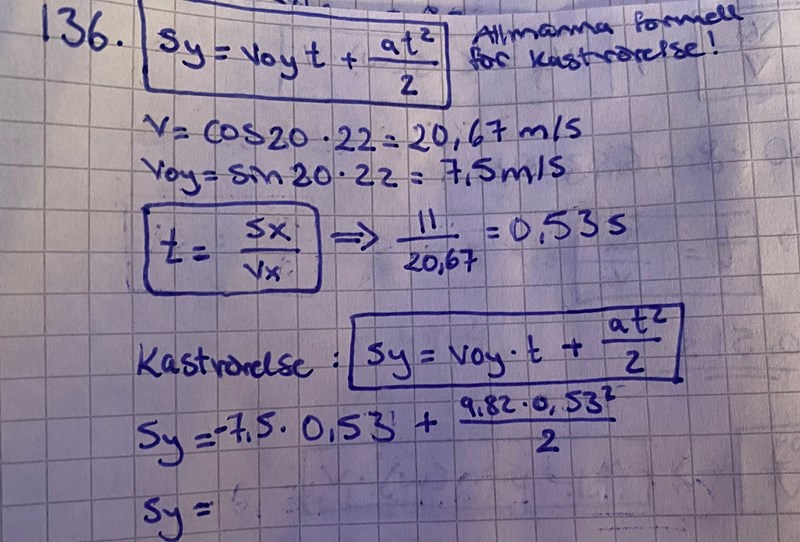 136. Sy = voy t + at²/2 Allmänna formell
för kaströrelse!
V = cos20 · 22 = 20,67 m/s
Voy = sin20 · 22 = 7,5 m/s
t = sx/vx ⇒ 11/20,67 = 0,53 s
Kaströrelse : Sy = voy · t + at²/2
Sy = -7,5 · 0,53 + 9,82 · 0,53²/2
Sy =